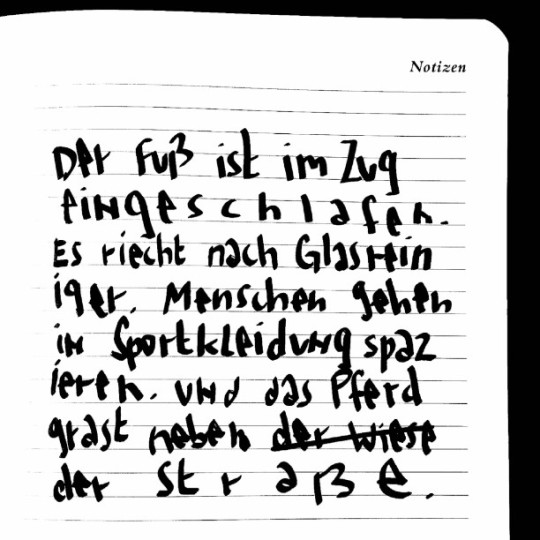 Notizen
Der Fuß ist im Zug
eingeschlafen.
Es riecht nach Glasrein
iger. Menschen gehen
in Sportkleidung spaz
ieren. und das Pferd
grast neben der Wiese
der Straße.